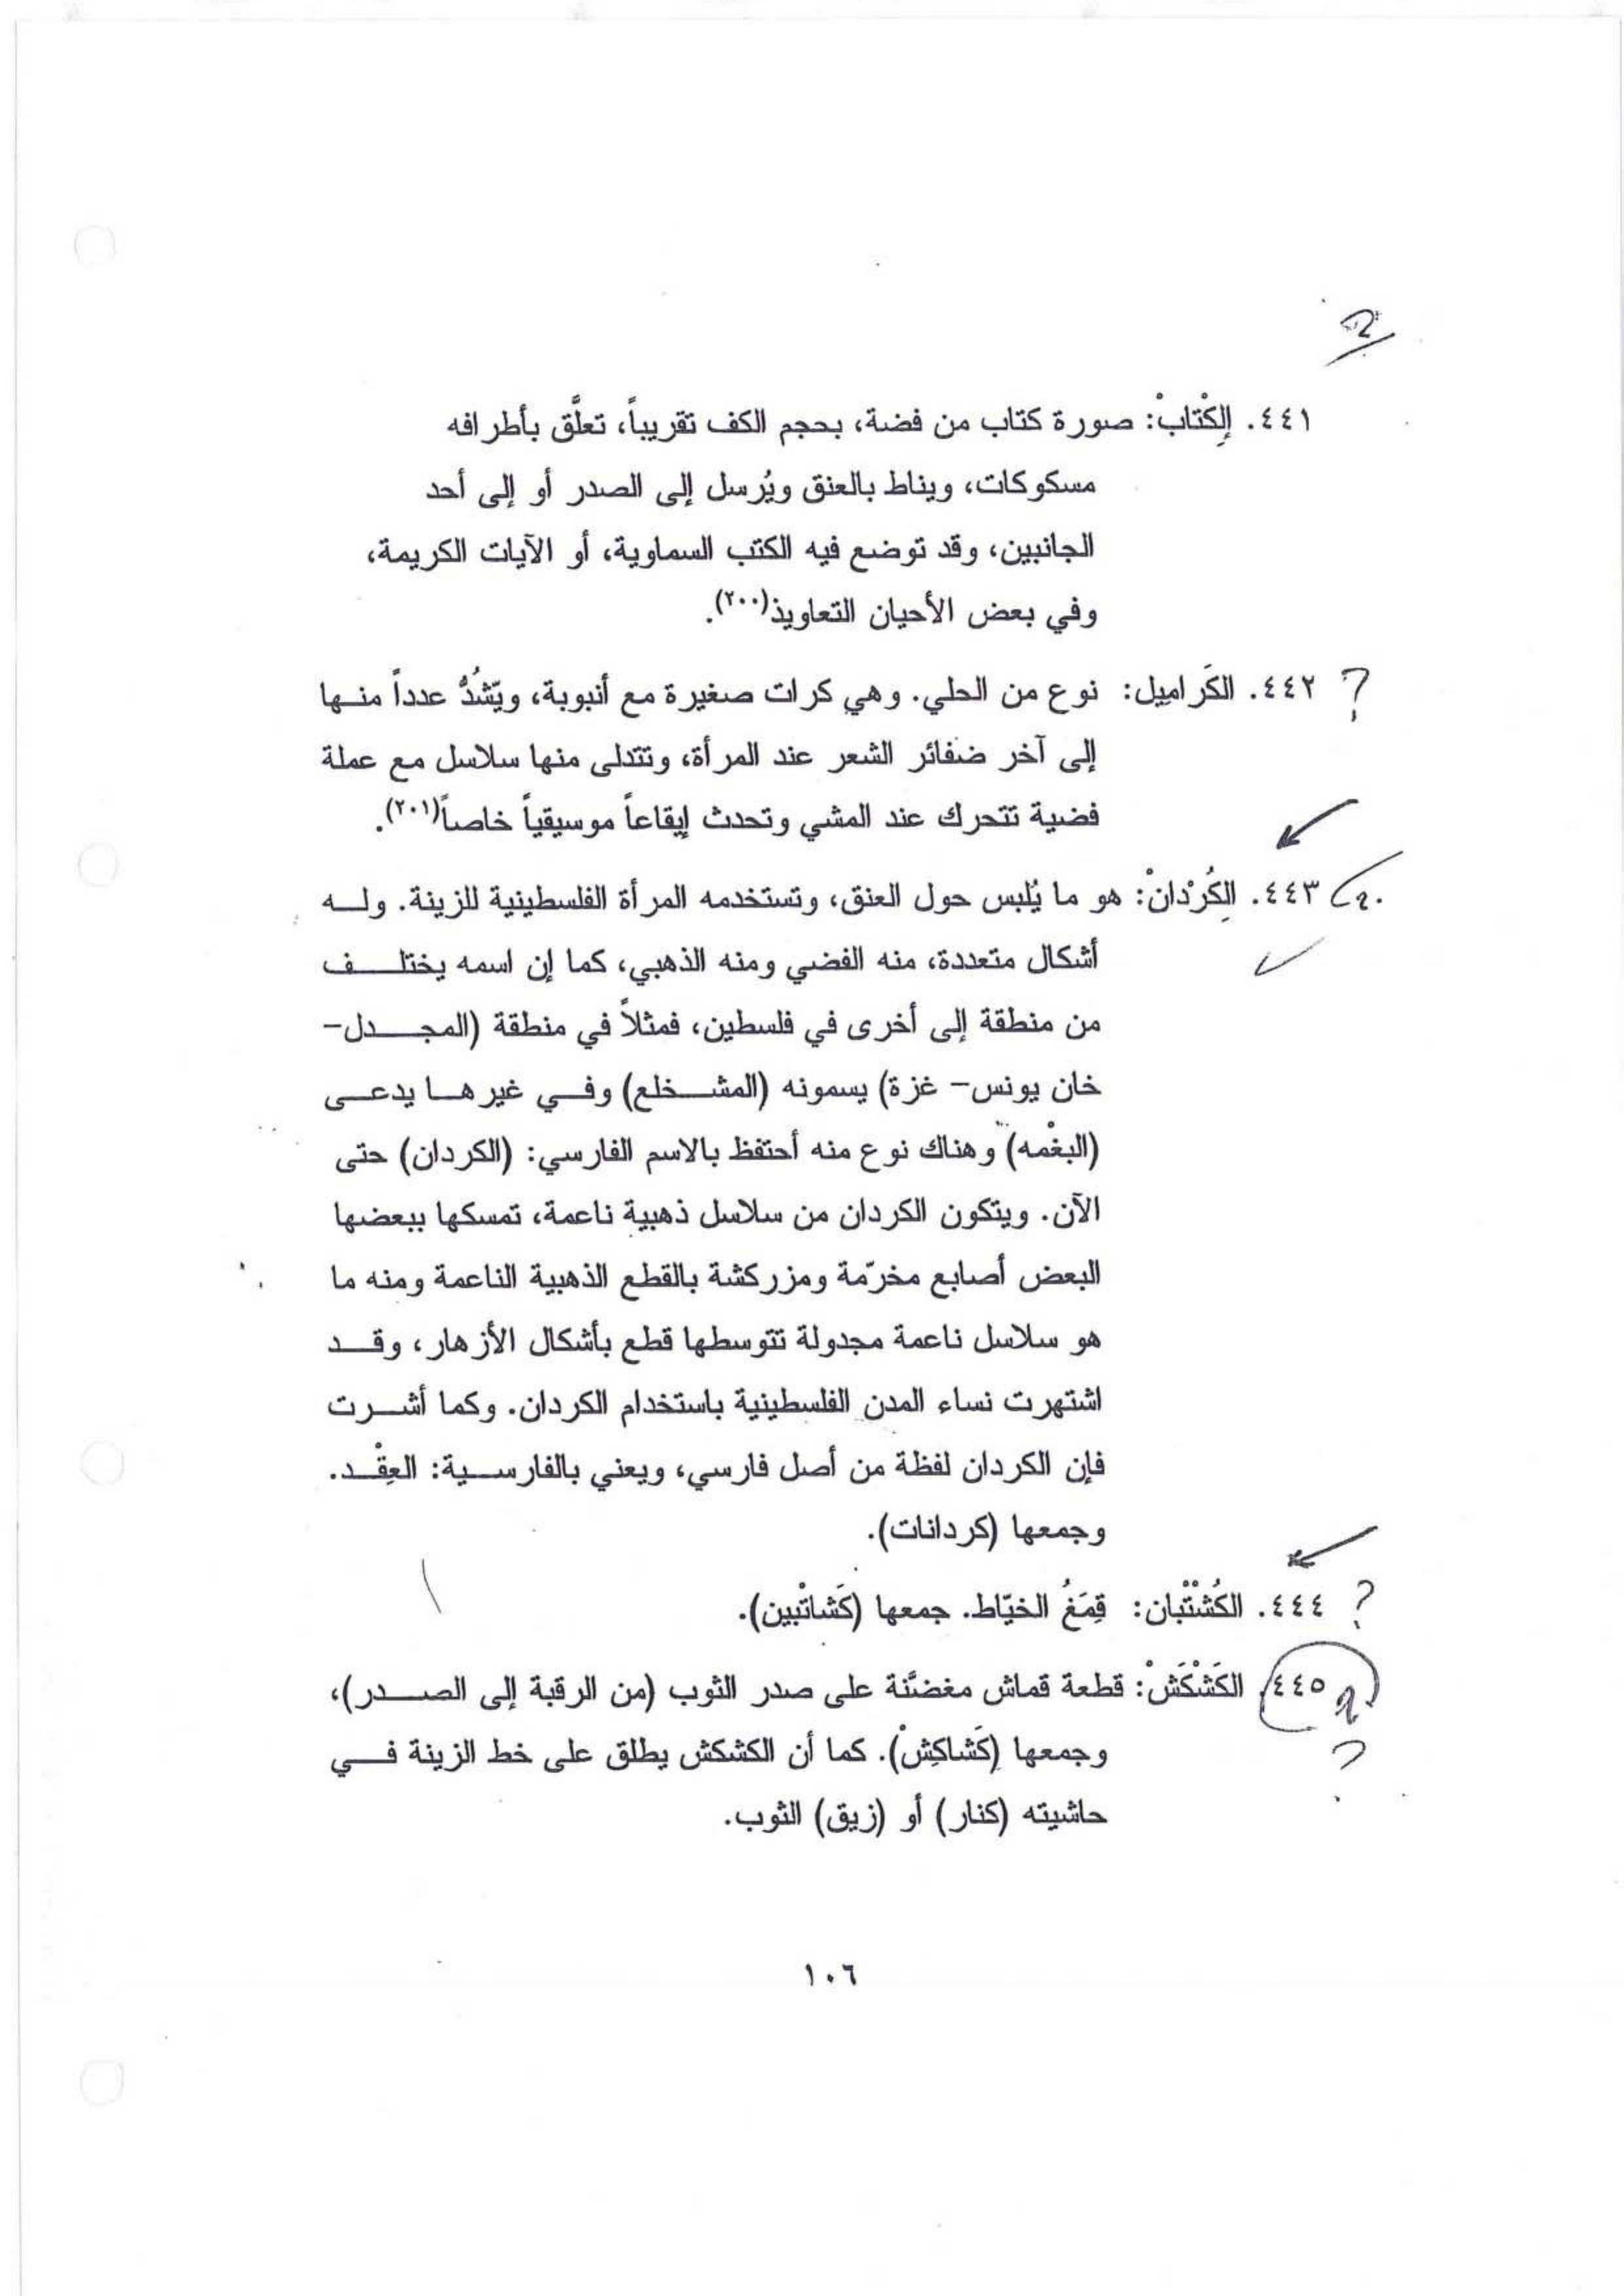 ٤٤١. إلِكْتابْ: صورة كتاب من فضة، بحجم الكف تقريباً، تعلَّق بأطرافه
مسكوكات، ويناط بالعنق ويُرسل إلى الصدر أو إلى أحد
الجانبين، وقد توضع فيه الكتب السماوية، أو الآيات الكريمة،
وفي بعض الأحيان التعاويذ(٢٠٠).
؟ ٤٤٢. الكَراميل: نوع من الحلي. وهي كرات صغيرة مع أنبوبة، ويّشُدُّ عدداً منها
إلى آخر ضفائر الشعر عند المرأة، وتتدلى منها سلاسل مع عملة
فضية تتحرك عند المشي وتحدث إيقاعاً موسيقياً خاصاً(٢٠١).
٤٤٣. الِكُرْدانْ: هو ما يُلبس حول العنق، وتستخدمه المرأة الفلسطينية للزينة. وله
أشكال متعددة، منه الفضي ومنه الذهبي، كما إن اسمه يختلف
من منطقة إلى أخرى في فلسطين، فمثلاً في منطقة (المجدل-
خان يونس- غزة) يسمونه (المشخلع) وفي غيرها يدعى
(البغْمه) وهناك نوع منه أحتفظ بالاسم الفارسي: (الكردان) حتى
الآن. ويتكون الكردان من سلاسل ذهبية ناعمة، تمسكها ببعضها
البعض أصابع مخرّمة ومزركشة بالقطع الذهبية الناعمة ومنه ما
هو سلاسل ناعمة مجدولة تتوسطها قطع بأشكال الأزهار، وقد
اشتهرت نساء المدن الفلسطينية باستخدام الكردان. وكما أشرت
فإن الكردان لفظة من أصل فارسي، ويعني بالفارسية: العِقْد.
وجمعها (كردانات).
؟ ٤٤٤. الكُشْتْبان: قِمَعُ الخيّاط. جمعها (كَشاتْبين).
٤٤٥. الكَشْكَشْ: قطعة قماش مغضَّنة على صدر الثوب (من الرقبة إلى الصدر)،
؟ وجمعها (كَشاكِشْ). كما أن الكشكش يطلق على خط الزينة في
حاشيته (كنار) أو (زيق) الثوب.
١٠٦